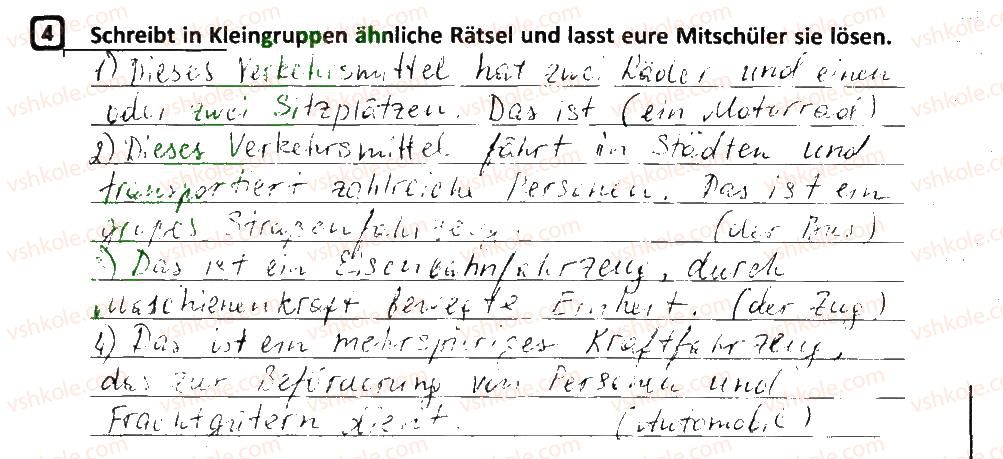 4 Schreibt in Kleingruppen ähnliche Rätsel und lasst eure Mitschüler sie lösen.
1) Dieses Verkehrsmittel hat zwei Räder und einen
oder zwei Sitzplätzen. Das ist (ein Motorrad)
2) Dieses Verkehrsmittel fährt in Städten und
transportiert zahlreiche Personen. Das ist ein
großes Straßenfahrzeug. (der Bus)
3) Das ist ein Eisenbahnfahrzeug, durch
Maschienenkraft bewegte Einheit. (der Zug)
4) Das ist ein mehrspuriges Kraftfahrzeug,
das zur Beförderung von Personen und
Frachtgütern dient. (Automobil)